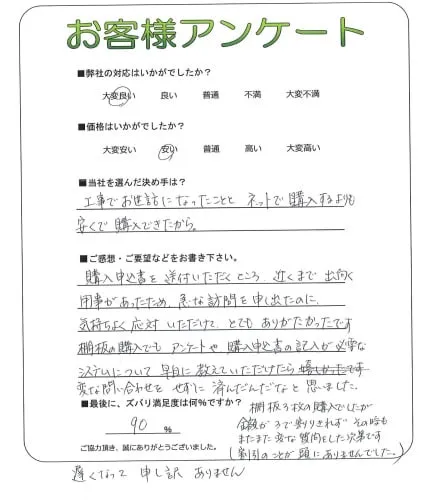 お客様アンケート
■弊社の対応はいかがでしたか？
大変良い 良い 普通 不満 大変不満
■価格はいかがでしたか？
大変安い 安い 普通 高い 大変高い
■当社を選んだ決め手は？
工事でお世話になったことと ネットで購入するよりも
安くで購入できたから。
■ご感想・ご要望などをお書き下さい。
購入申込書を送付いただくところ、近くまで出向く
用事があったため、急な訪問を申し出たのに、
気持ちよく応対いただけて、とてもありがたかったです
棚板の購入でも アンケートや購入申込書の記入が必要な
システムについて 早目に教えていただけたら 嬉しかったです
変な問い合わせを せずに 済んだんだなと 思いました。
■最後に、ズバリ満足度は何％ですか？
90 ％
棚板3枚の購入でしたが
金額が3で割りきれず その時も
またまた変な質問をした次第です
(割引のことが頭にありませんでした。)
ご協力頂き、誠にありがとうございました。
遅くなって 申し訳 ありません